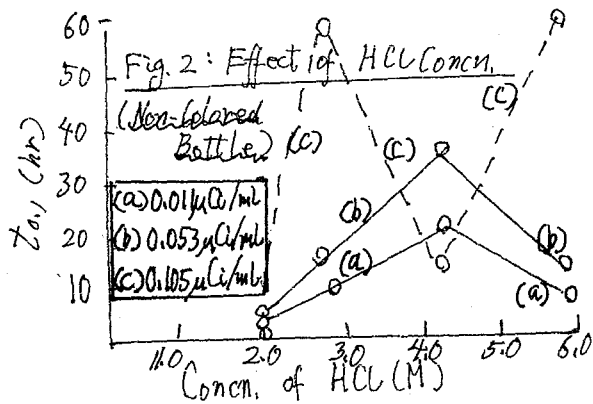 Fig. 2: Effect of HCl Concn.
(Non-Colored
Bottles)
(a) 0.01 μCi/mL
(b) 0.053 μCi/mL
(c) 0.105 μCi/mL
(c)
(c)
(c)
(b)
(a)
(b)
(a)
60
50
40
30
20
10
(hr)
1.0 2.0 3.0 4.0 5.0 6.0
Concn. of HCl (M)